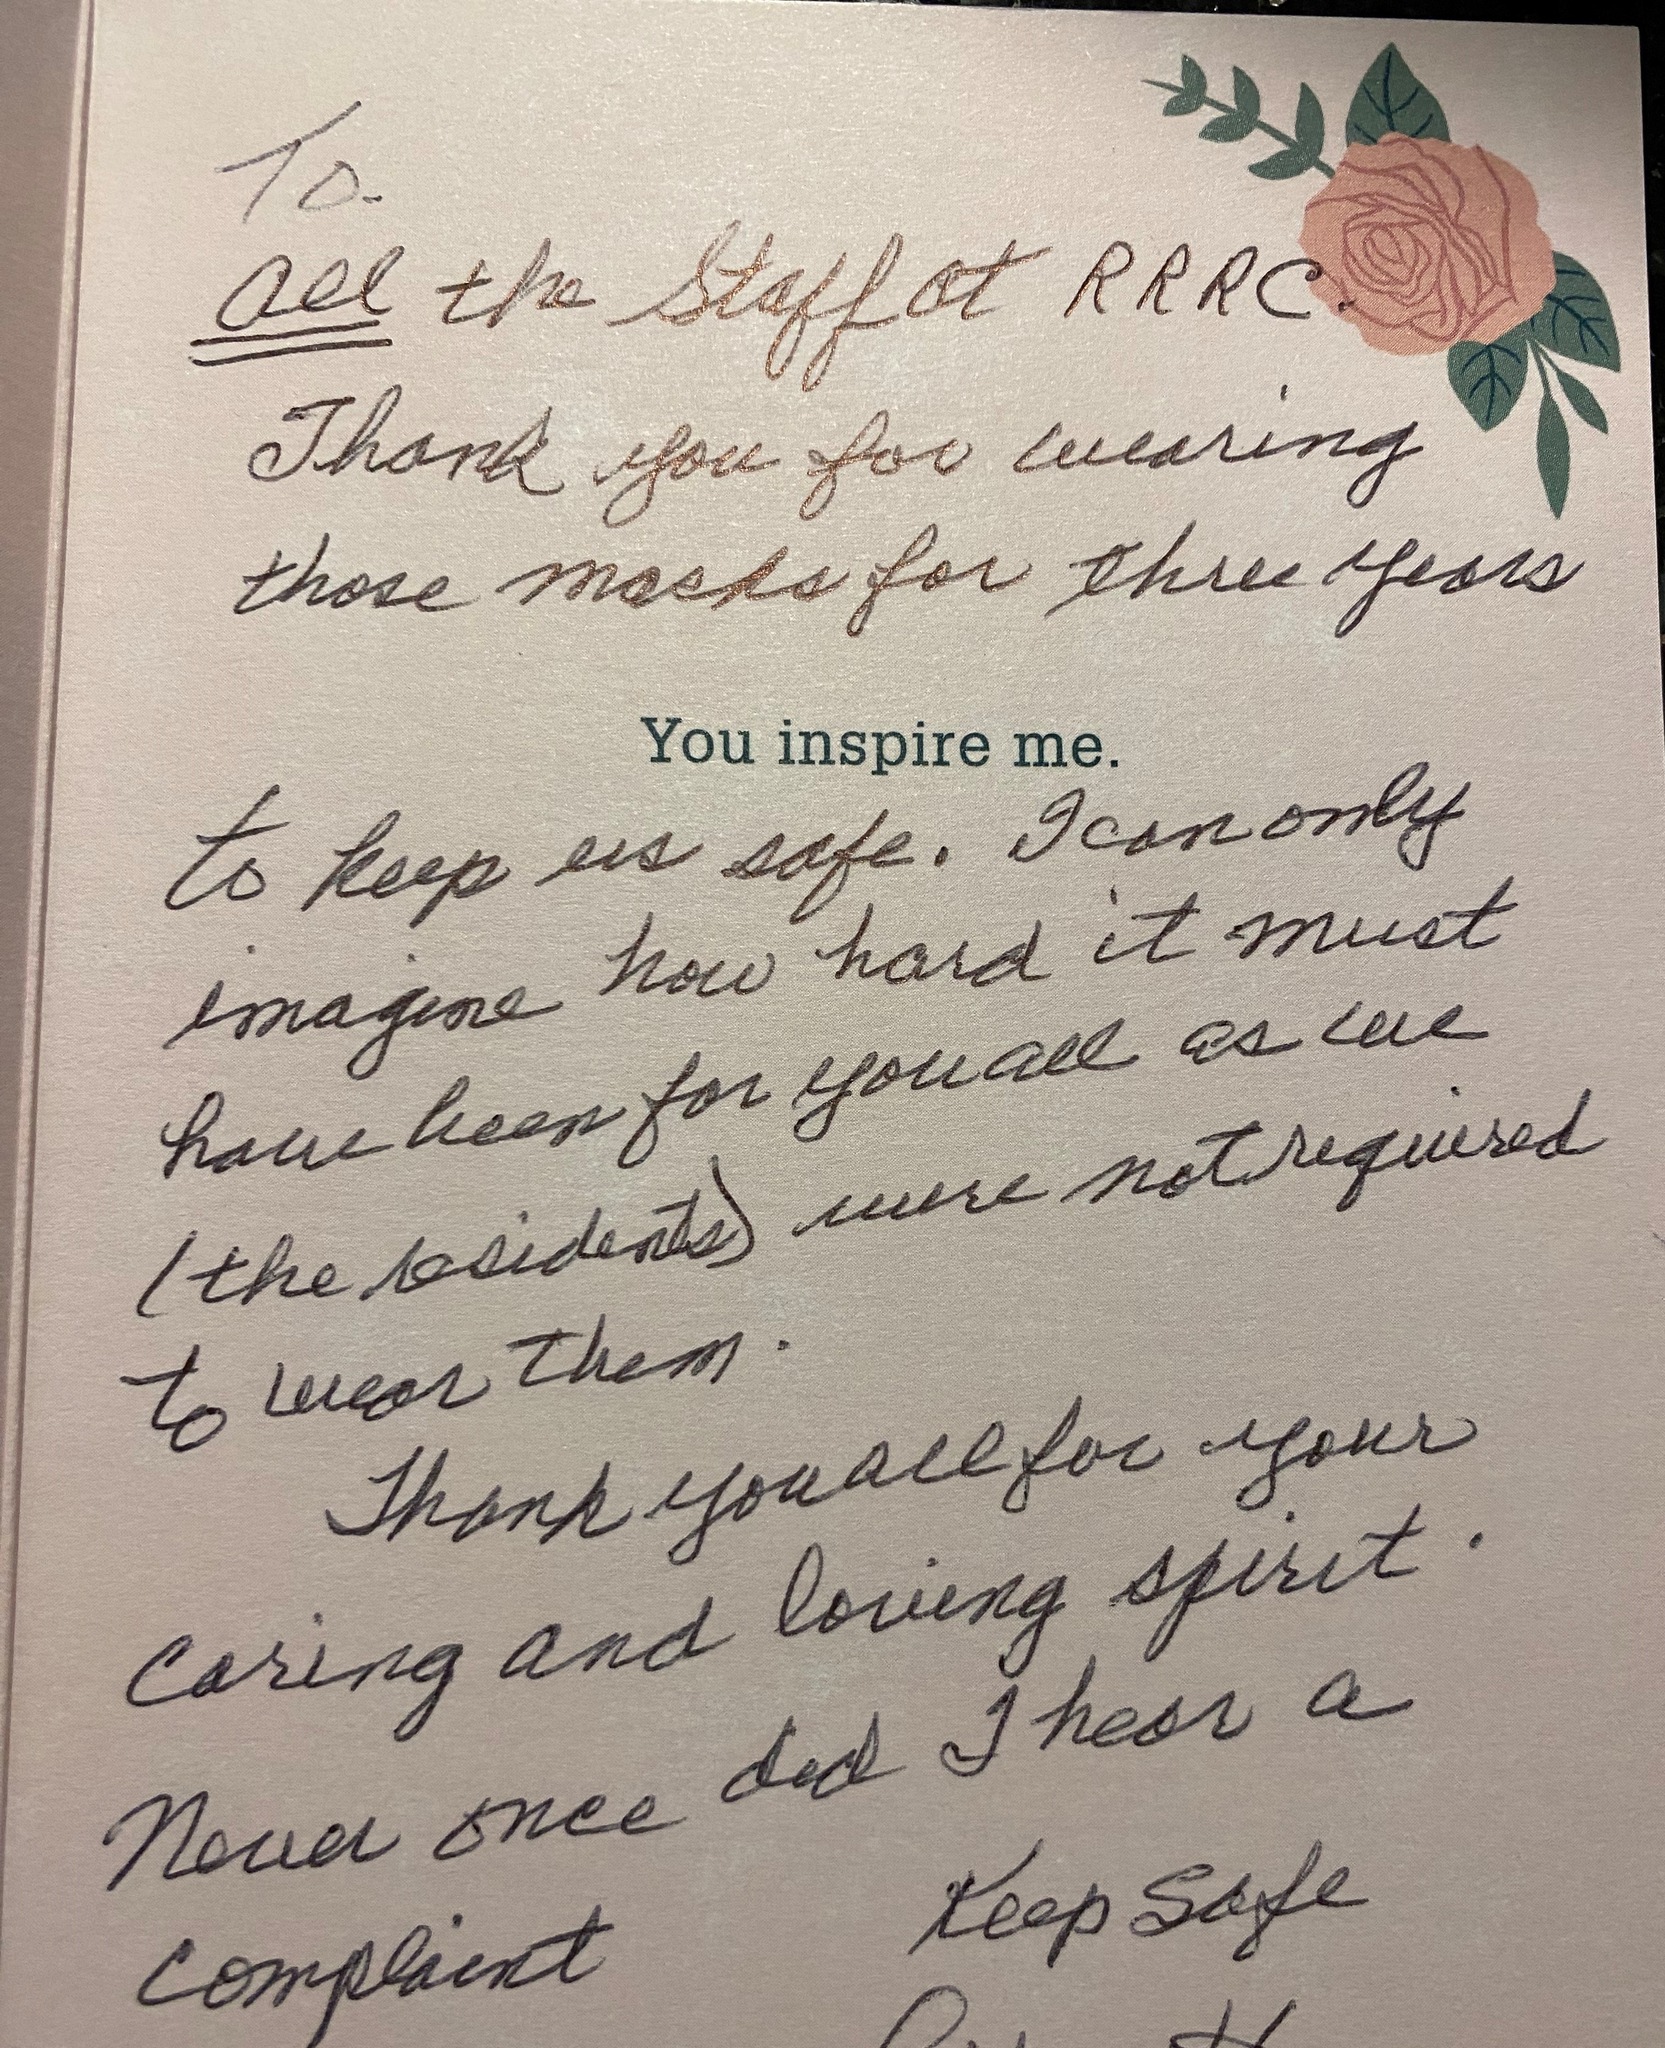 To.
All the Staff at RRRC.
Thank you for wearing
those masks for three years
You inspire me.
to keep us safe. I can only
imagine how hard it must
have been for you all as we
(the residents) were not required
to wear them.
Thank you all for your
caring and loving spirit.
Never once did I hear a
complaint
Keep Safe